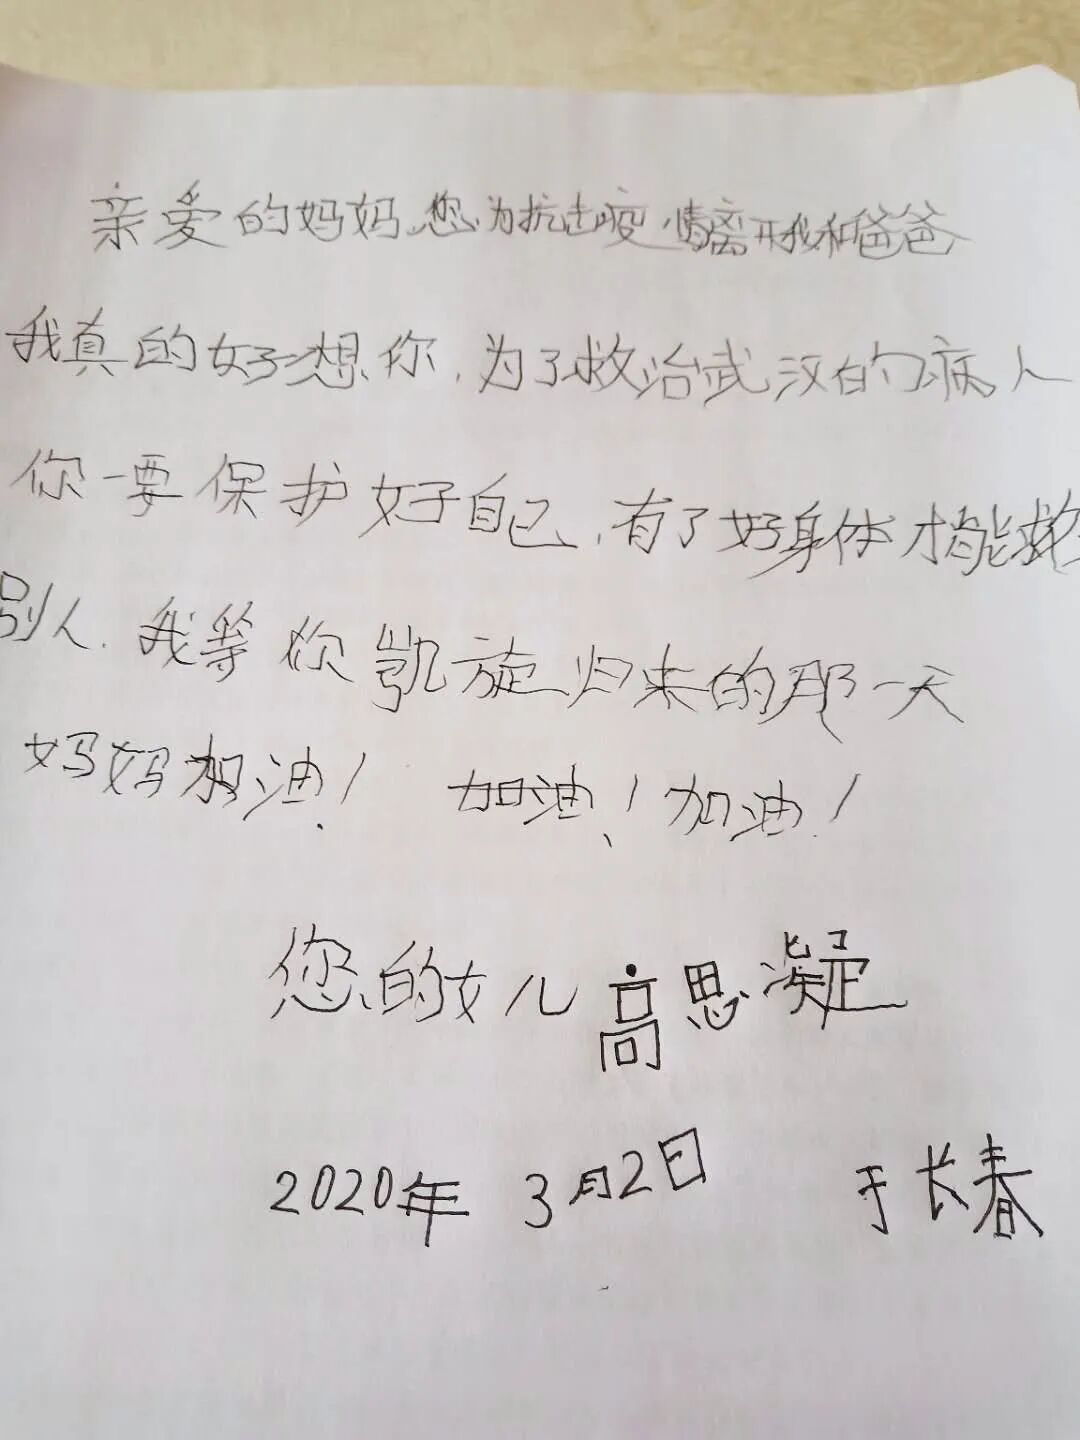 亲爱的妈妈.您.为抗击疫情离开我和爸爸
我真的好想你.为了救治武汉的病人
你一要保护好自己.有了好身体才能救
别人.我等你凯旋归来的那一天
妈妈加油!加油!加油!
您的女儿高思凝
2020年 3月2日 于长春